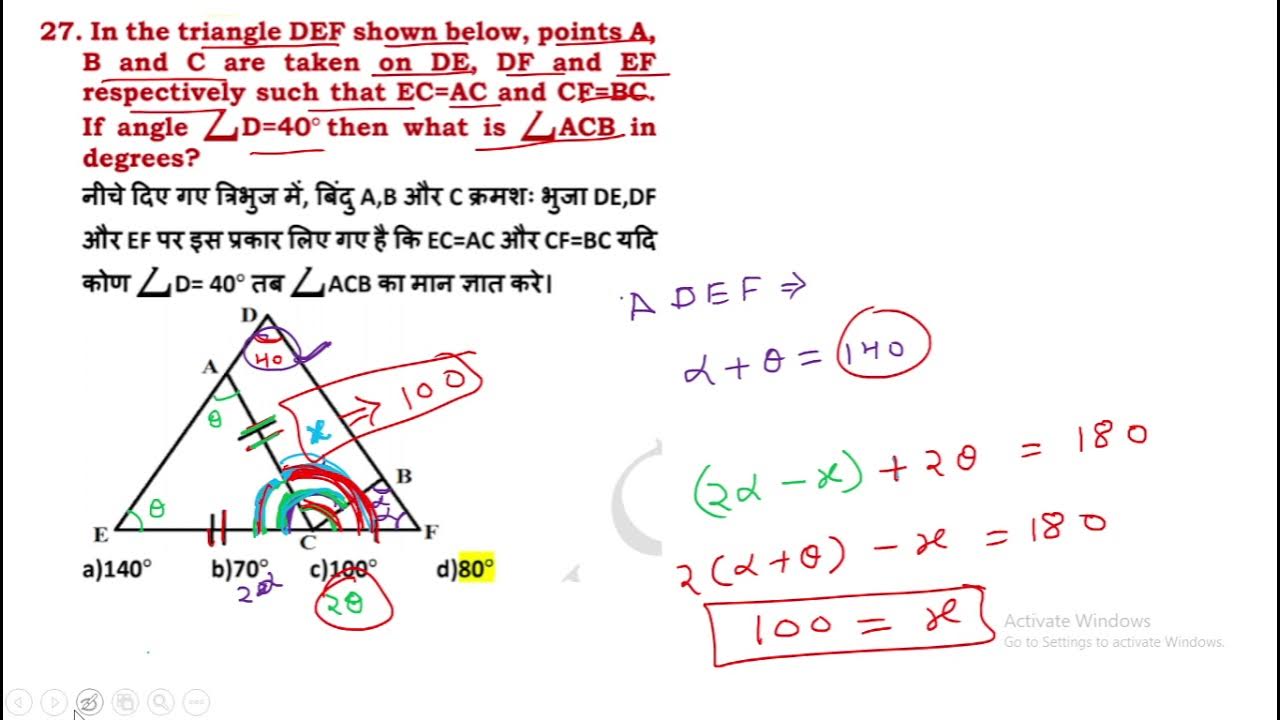 27. In the triangle DEF shown below, points A,
B and C are taken on DE, DF and EF
respectively such that EC=AC and CF=BC.
If angle ∠D=40° then what is ∠ACB in
degrees?
नीचे दिए गए त्रिभुज में, बिंदु A,B और C क्रमशः भुजा DE,DF
और EF पर इस प्रकार लिए गए है कि EC=AC और CF=BC यदि
कोण ∠D= 40° तब ∠ACB का मान ज्ञात करे।
D
40
A
θ
x ⇒ 100
B
α
α
θ
E
C
F
a)140° b)70° c)100° d)80°
2α
2θ
Δ DEF ⇒
α + θ = 140
(2α - x) + 2θ = 180
2(α + θ) - x = 180
100 = x
Activate Windows
Go to Settings to activate Windows.